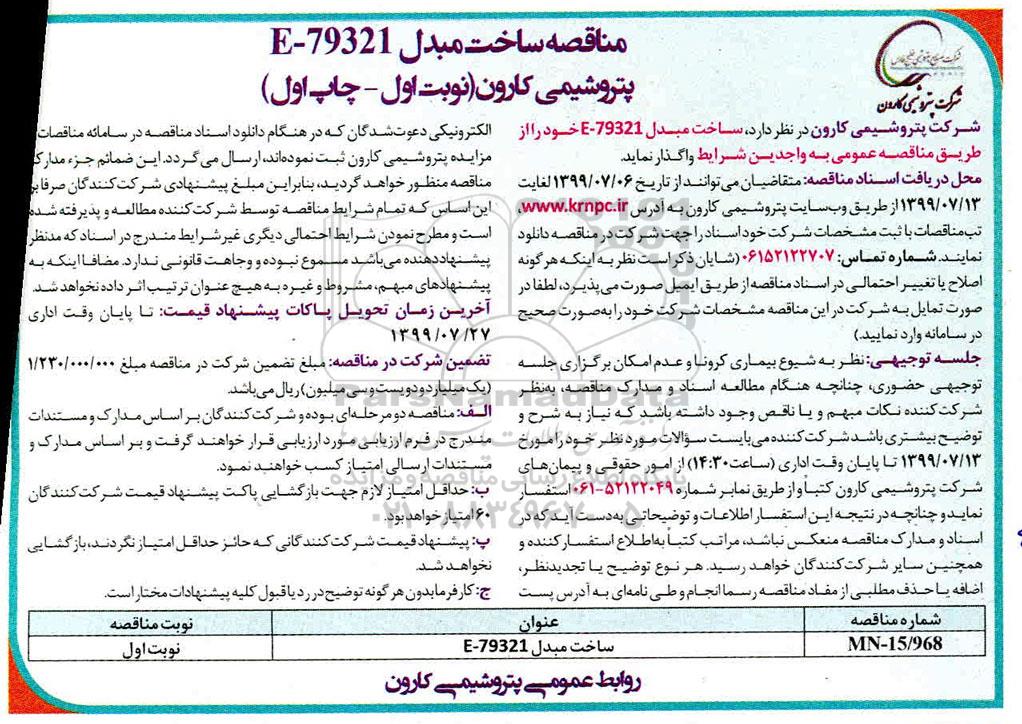 مناقصه ساخت مبدل E-79321
پتروشیمی کارون (نوبت اول - چاپ اول)
شرکت صنایع پتروشیمی خلیج فارس
شرکت پتروشیمی کارون
شرکت پتروشیمی کارون در نظر دارد، ساخت مبدل E-79321 خود را از
طریق مناقصه عمومی به واجدین شرایط واگذار نماید.
محل دریافت اسناد مناقصه: متقاضیان می‌توانند از تاریخ ۱۳۹۹/۰۷/۰۶ لغایت
۱۳۹۹/۰۷/۱۳ از طریق وب‌سایت پتروشیمی کارون به آدرس www.krnpc.ir،
تب مناقصات با ثبت مشخصات شرکت خود اسناد را جهت شرکت در مناقصه دانلود
نمایند. شماره تماس: ۰۶۱۵۲۱۲۲۷۰۷ (شایان ذکر است نظر به اینکه هرگونه
اصلاح یا تغییر احتمالی در اسناد مناقصه از طریق ایمیل صورت می‌پذیرد، لطفا در
صورت تمایل به شرکت در این مناقصه مشخصات شرکت خود را به‌صورت صحیح
در سامانه وارد نمایید.)
جلسه توجیهی: نظر به شیوع بیماری کرونا و عدم امکان برگزاری جلسه
توجیهی حضوری، چنانچه هنگام مطالعه اسناد و مدارک مناقصه، به‌نظر
شرکت کننده نکات مبهم و یا ناقص وجود داشته باشد که نیاز به شرح و
توضیح بیشتری باشد شرکت کننده می‌بایست سؤالات مورد نظر خود را مورخ
۱۳۹۹/۰۷/۱۳ تا پایان وقت اداری (ساعت ۱۴:۳۰) از امور حقوقی و پیمان‌های
شرکت پتروشیمی کارون کتباً و از طریق نمابر شماره ۵۲۱۲۲۰۴۹-۰۶۱ استفسار
نماید و چنانچه در نتیجه این استفسار اطلاعات و توضیحاتی به‌دست آید که در
اسناد و مدارک مناقصه منعکس نباشد، مراتب کتباً به‌اطلاع استفسار کننده و
همچنین سایر شرکت کنندگان خواهد رسید. هر نوع توضیح یا تجدیدنظر،
اضافه یا حذف مطلبی از مفاد مناقصه رسما انجام و طی نامه‌ای به آدرس پست
الکترونیکی دعوت شدگان که در هنگام دانلود اسناد مناقصه در سامانه مناقصات
مزایده پتروشیمی کارون ثبت نموده‌اند، ارسال می‌گردد. این ضمائم جزء مدارک
مناقصه منظور خواهد گردید، بنابراین مبلغ پیشنهادی شرکت کنندگان صرفا بر
این اساس که تمام شرایط مناقصه توسط شرکت کننده مطالعه و پذیرفته شده
است و مطرح نمودن شرایط احتمالی دیگری غیر شرایط مندرج در اسناد که مدنظر
پیشنهاد دهنده می‌باشد مسموع نبوده و وجاهت قانونی ندارد. مضافا اینکه به
پیشنهادهای مبهم، مشروط و غیره به هیچ عنوان ترتیب اثر داده نخواهد شد.
آخرین زمان تحویل پاکات پیشنهاد قیمت: تا پایان وقت اداری
۱۳۹۹/۰۷/۲۷
تضمین شرکت در مناقصه: مبلغ تضمین شرکت در مناقصه مبلغ ۱/۲۳۰/۰۰۰/۰۰۰
(یک میلیارد و دویست و سی میلیون) ریال می‌باشد.
الف: مناقصه دو مرحله‌ای بوده و شرکت کنندگان بر اساس مدارک و مستندات
مندرج در فرم ارزیابی مورد ارزیابی قرار خواهند گرفت و بر اساس مدارک و
مستندات ارسالی امتیاز کسب خواهند نمود.
ب: حداقل امتیاز لازم جهت بازگشایی پاکت پیشنهاد قیمت شرکت کنندگان
۶۰ امتیاز خواهد بود.
پ: پیشنهاد قیمت شرکت کنندگانی که حائز حداقل امتیاز نگردند، بازگشایی
نخواهد شد.
ج: کارفرما بدون هرگونه توضیح در رد یا قبول کلیه پیشنهادات مختار است.
شماره مناقصه عنوان نوبت مناقصه
MN-15/968 ساخت مبدل E-79321 نوبت اول
روابط عمومی پتروشیمی کارون
ParsNamadData
۰۲۱-۸۸۳۴۹۶۷۰-۵